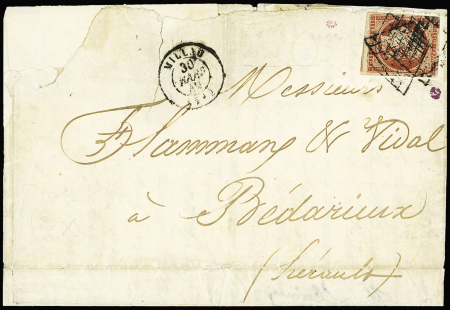 MILLAU
30
MARS
Messieurs
Flamman & Vidal
à Bédarieux
(hérault)